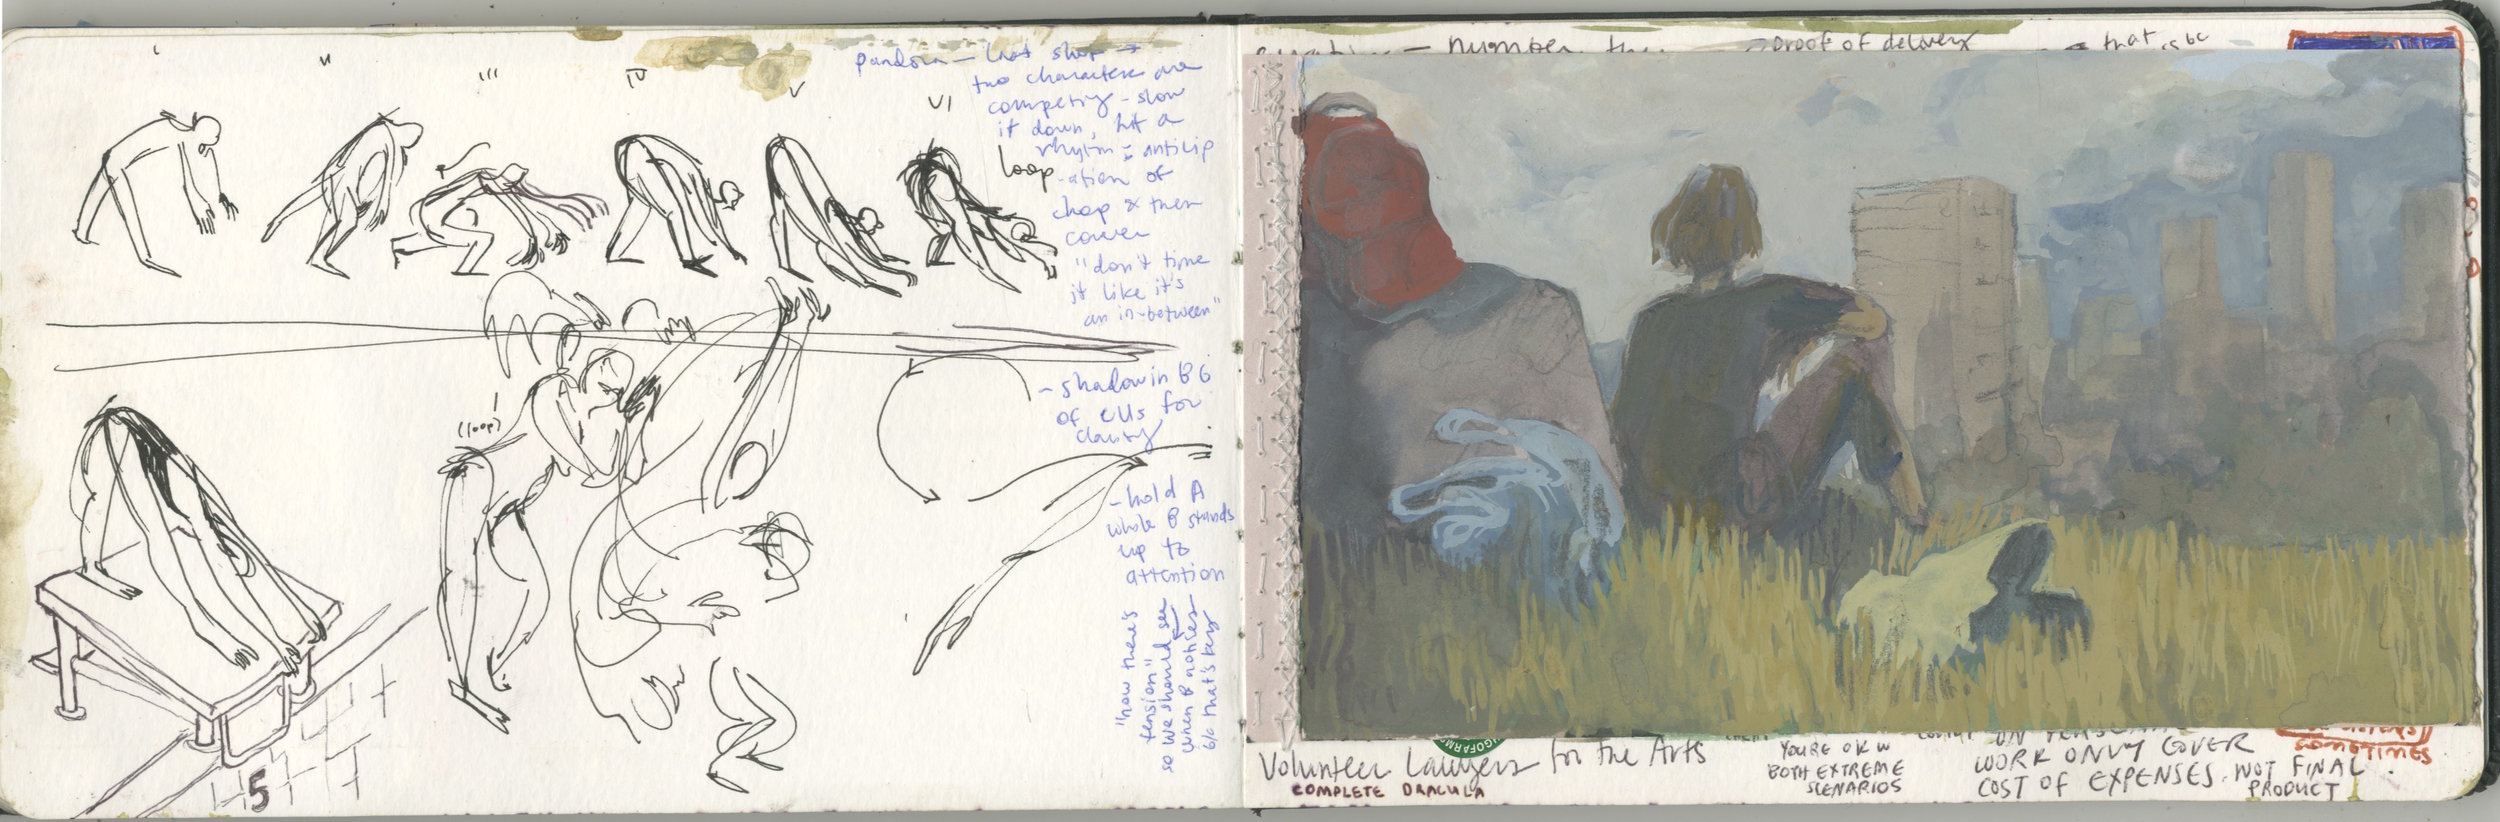 I
II
III
IV
V
VI
pandora – last shot →
two characters are
competing – slow
it down, hit a
rhythm : anticip
-ation of
chop & then
cower
"don't time
it like it's
an in-between"
loop
(loop)
– shadow in BG
of CUs for
clarity
– hold A
while B stands
up to
attention
"now there's
tension"
so we should see
when B notices
b/c that's key
5
– number the
proof of delivery
that
is bc
Volunteer Lawyers for the Arts
COMPLETE DRACULA
YOU'RE OK W
BOTH EXTREME
SCENARIOS
ON
WORK ONLY COVER
COST OF EXPENSES. NOT FINAL
PRODUCT
SOMETIMES